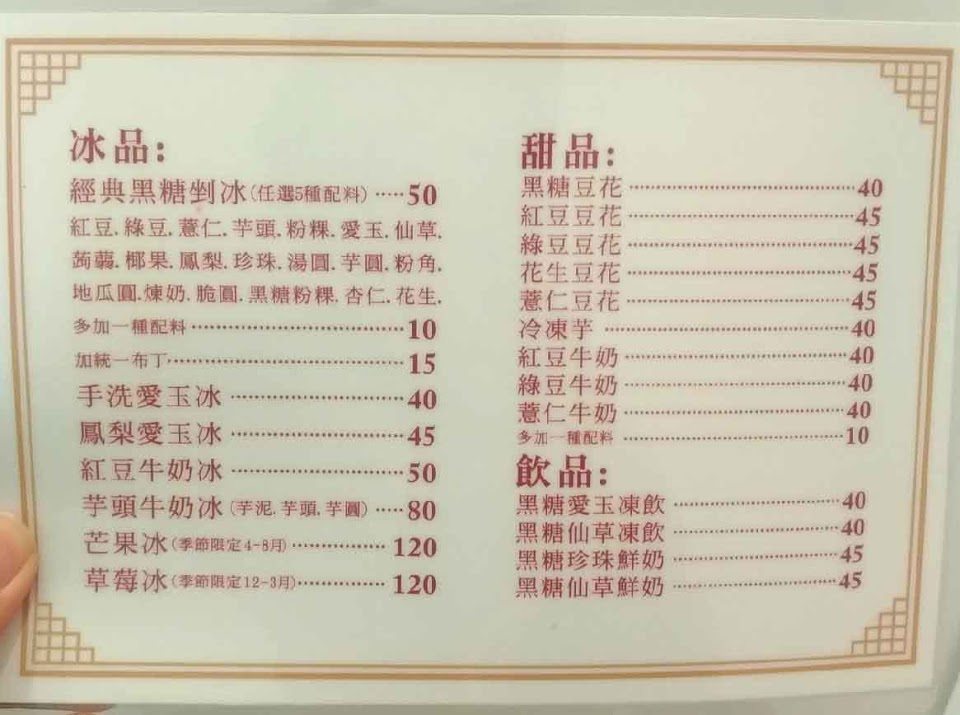 冰品:
經典黑糖剉冰(任選5種配料)·····50
紅豆.綠豆.薏仁.芋頭.粉粿.愛玉.仙草.
蒟蒻.椰果.鳳梨.珍珠.湯圓.芋圓.粉角.
地瓜圓.煉奶.脆圓.黑糖粉粿.杏仁.花生.
多加一種配料 10
加統一布丁 15
手洗愛玉冰 40
鳳梨愛玉冰 45
紅豆牛奶冰 50
芋頭牛奶冰(芋泥.芋頭.芋圓)·····80
芒果冰(季節限定4-8月) 120
草莓冰(季節限定12-3月) 120
甜品:
黑糖豆花 40
紅豆豆花 45
綠豆豆花 45
花生豆花 45
薏仁豆花 45
冷凍芋 40
紅豆牛奶 40
綠豆牛奶 40
薏仁牛奶 40
多加一種配料 10
飲品:
黑糖愛玉凍飲 40
黑糖仙草凍飲 40
黑糖珍珠鮮奶 45
黑糖仙草鮮奶 45